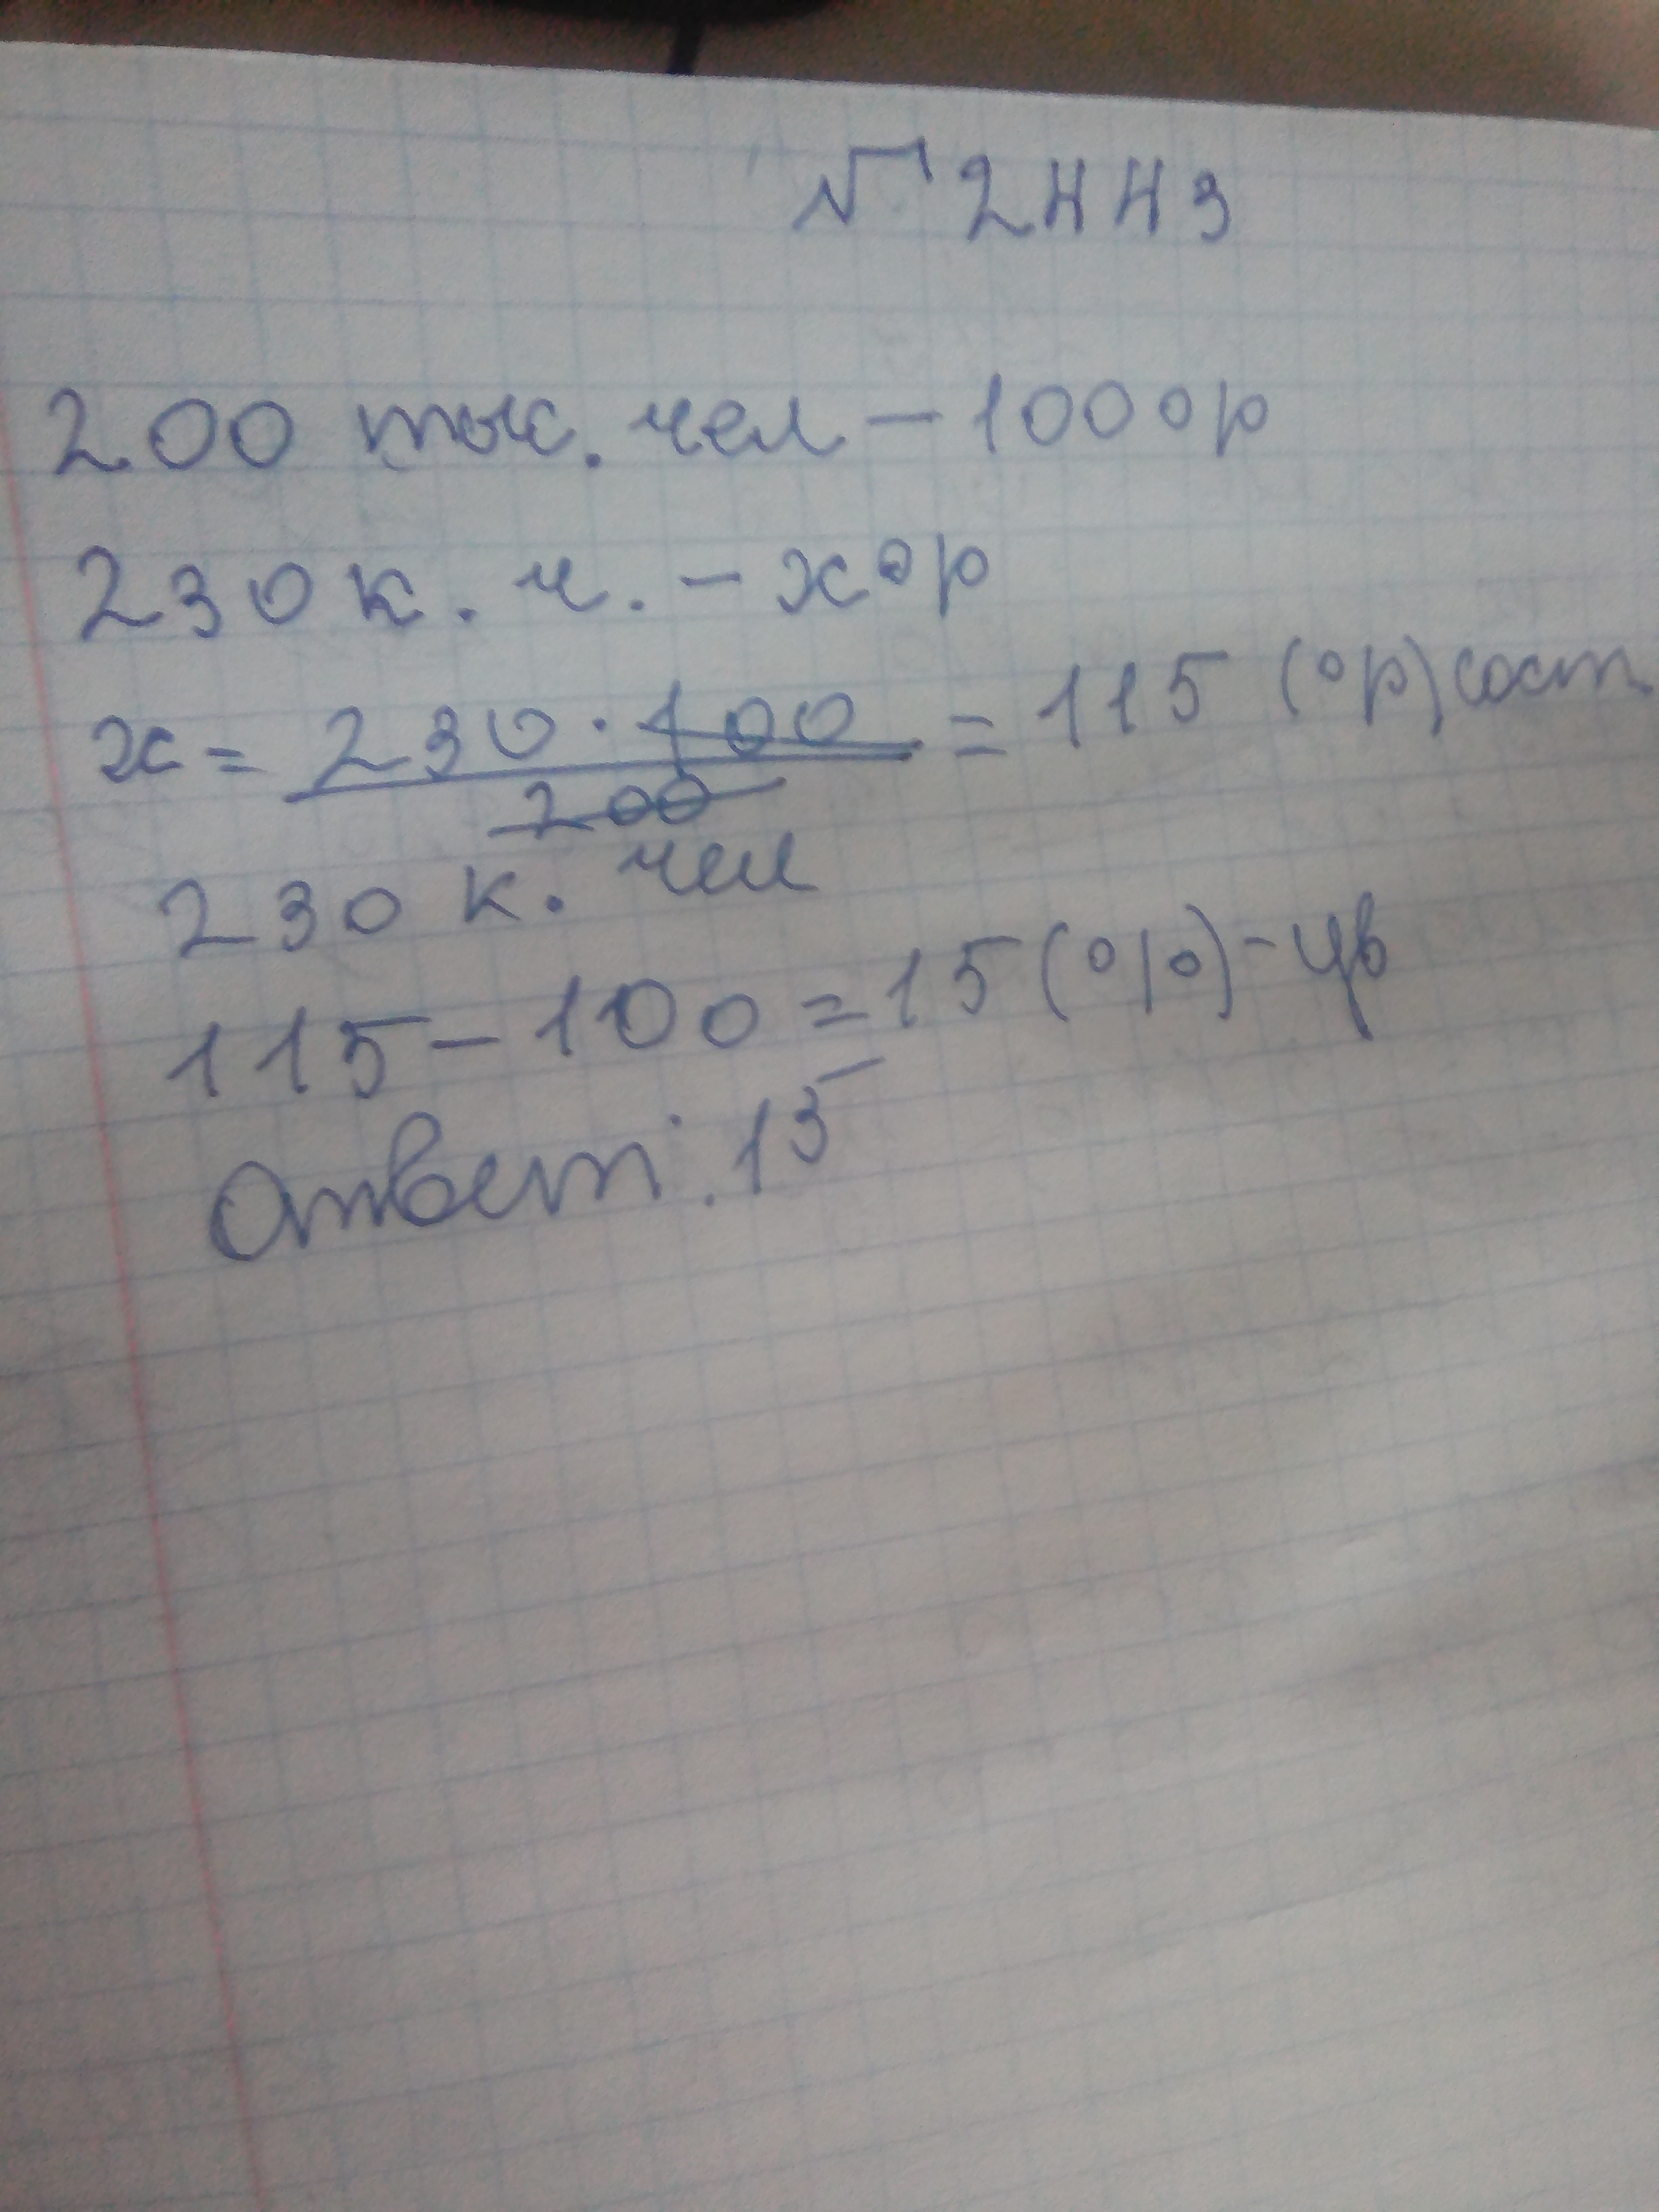 № 2443
200 тыс. чел – 100%
230 к. ч. – x%
x = 230 · 100 / 200 = 115 (%) сост
230 к. чел
115 – 100 = 15 (%) – ув
Ответ: 15